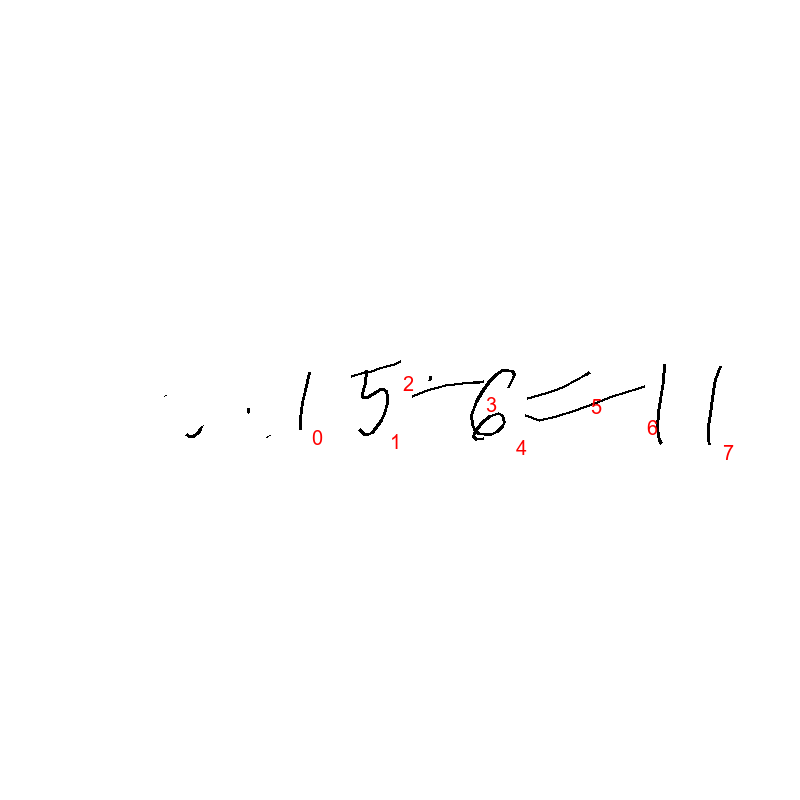 15-6=11
0 1 2 3 4 5 6 7